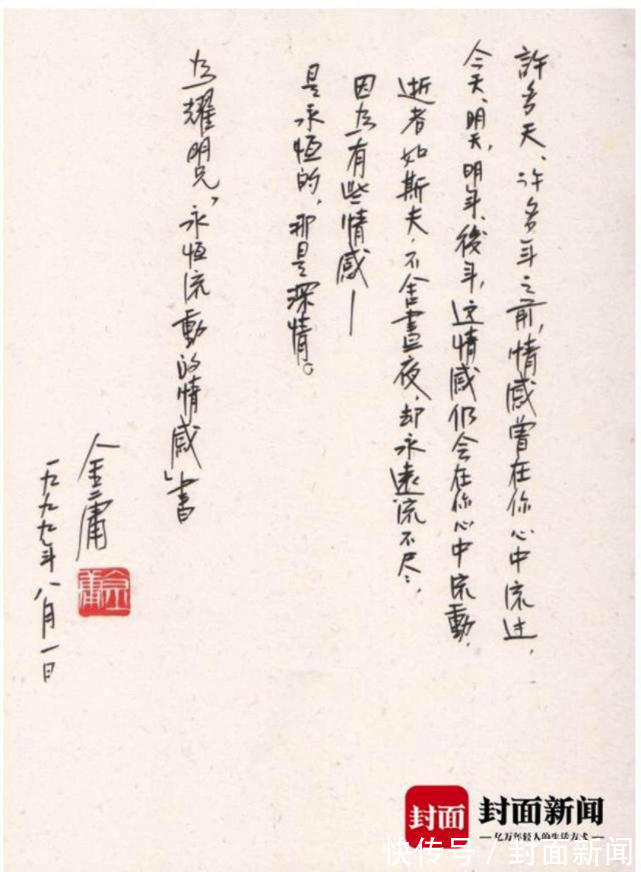 許多天、许多年之前，情感曾在你心中流过，
今天、明天，明年、後年，这情感仍会在你心中流動，
逝者如斯夫，不舍晝夜，却永遠流不尽，
因为有些情感—
是永恒的，那是深情。
为耀明兄「永恒流動的情感」書
金庸
一九九九年八月一日
金庸
封面
封面新闻
亿万年轻人的生活方式
快传号 / 封面新闻